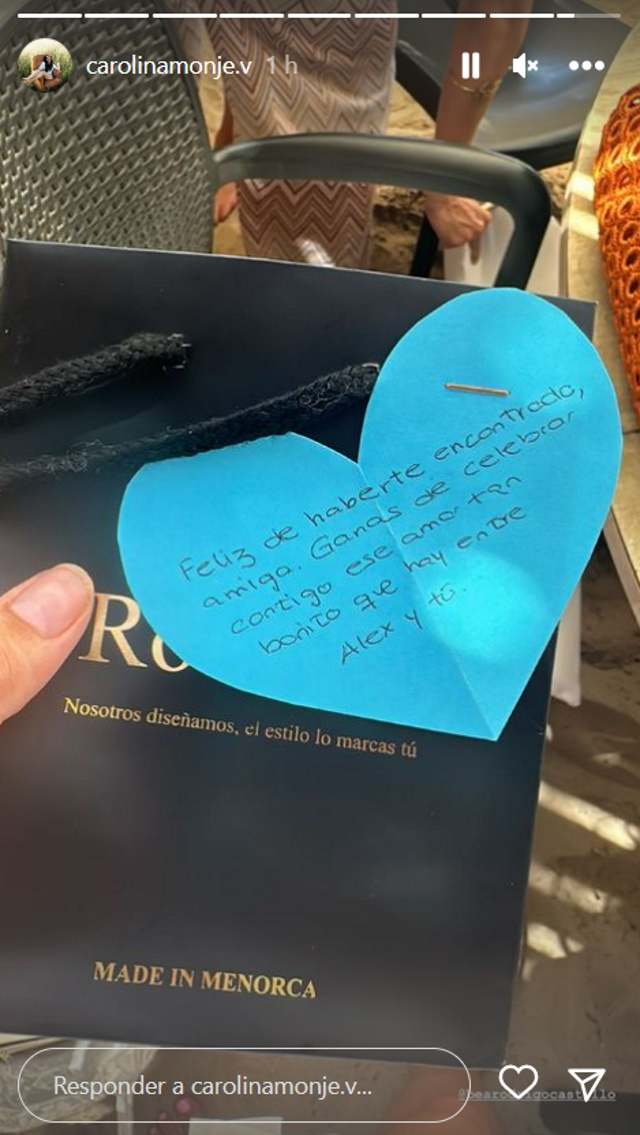 carolinamonje.v 1 h
Feliz de haberte encontrado,
amiga. Ganas de celebrar
contigo ese amor tan
bonito que hay entre
Alex y tú.
Nosotros diseñamos, el estilo lo marcas tú
MADE IN MENORCA
Responder a carolinamonje.v...